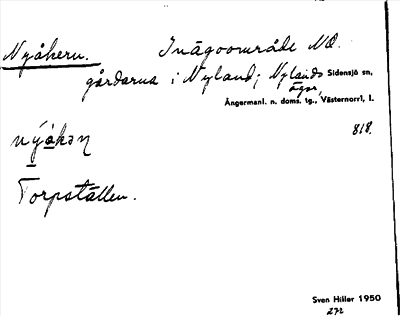 Nyåkern. Inägoområde NO.
gårdarna i Nyland; Nylands Sidensjö sn,
ägor,
Ångermanl. n. doms. tg., Västernorrl. l.
818.
nýåkəṇ
Torpställen.
Sven Hiller 1950
272